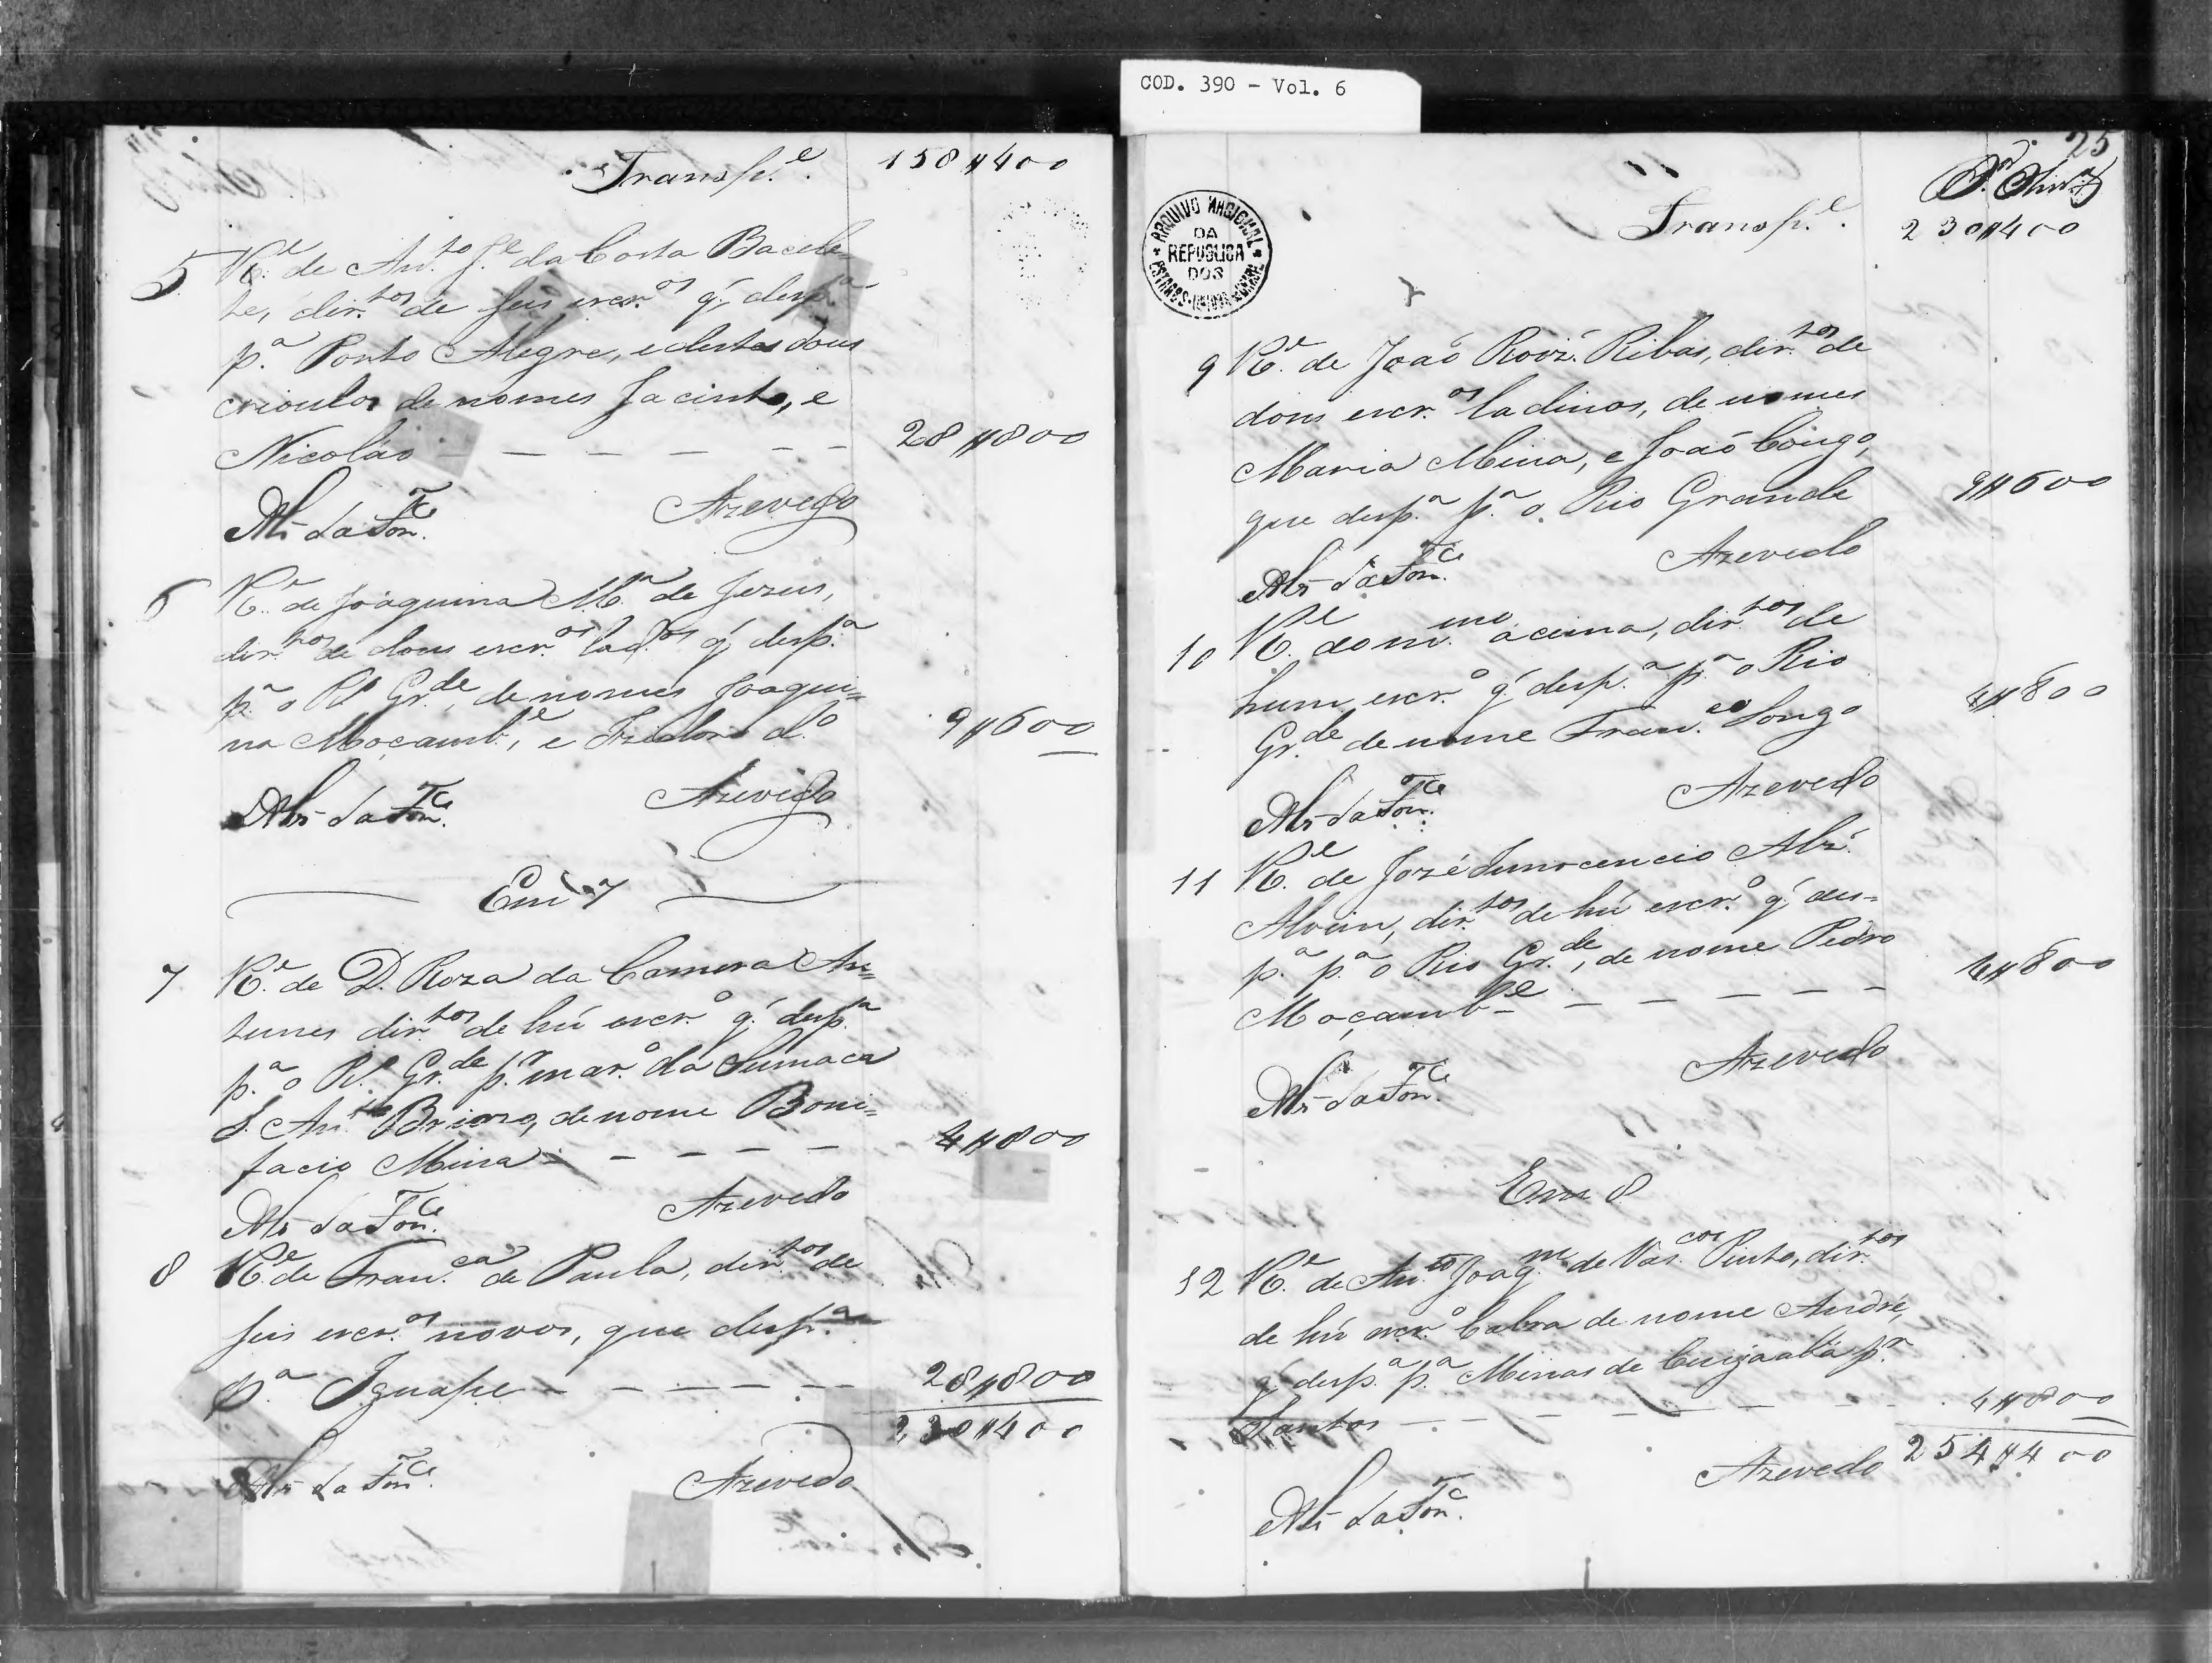 COD. 390 - Vol. 6
Transp.e 158$400
5 R.e de An.to J.e da Costa Bacele-
te, dir.tos de seis escr.os q' desp.a
p.a Porto Alegre, e destes dous
crioulos de nomes Jacinto, e
Nicoláo - - - - - - 28$800
Alz' da Fon.ca Azevedo
6 R.e de Joaquina M.a de Jezus,
dir.tos de dous escr.os lad.os q' desp.a
p.a o R.o Gr.de, de nomes Joaqui=
na Moçamb.e, e Izidoro d.o 9$600
Alz' da Fon.ca Azevedo
Em 7
7 R.e de D. Roza da Camera An=
tunes dir.tos de hú escr.o q' desp.a
p.a o R.o Gr.de p.a mar.o da Sumaca
S. An.to Brioso, de nome Boni=
facio Mina - - - - - 4$800
Alz' da Fon.ca Azevedo
8 R.e de Fran.ca de Paula, dir.tos de
seis escr.os novos, que desp.a
p.a Iguape - - - - - 28$800
230$400
Alz' da Fon.ca Azevedo
25
Transp.e 230$400
ARQUIVO NACIONAL
DA
REPUBLICA
DOS
ESTADOS UNIDOS
9 R.e de Joaõ Roiz' Ribas, dir.tos de
dous escr.os ladinos, de nomes
Maria Mina, e Joaõ Congo,
que desp.a p.a o Rio Grande 9$600
Alz' da Fon.ca Azevedo
10 R.e do m.mo acima, dir.tos de
hum escr.o q' desp.a p.a o Rio
Gr.de de nome Fran.co Songo 4$800
Alz' da Fon.ca Azevedo
11 R.e de Jozé Innocencio Alz'
Alvim, dir.tos de hú escr.o q' des=
p.a p.a o Rio Gr.de, de nome Pedro
Moçamb.e - - - - - 4$800
Alz' da Fon.ca Azevedo
Em 8
12 R.e de An.to Joaq.m de Vas.cos Pinto, dir.tos
de hú escr.o Cabra de nome André,
q' desp.a p.a Minas de Cuyaabá p.r
Santos - - - - - - 4$800
254$400
Alz' da Fon.ca Azevedo